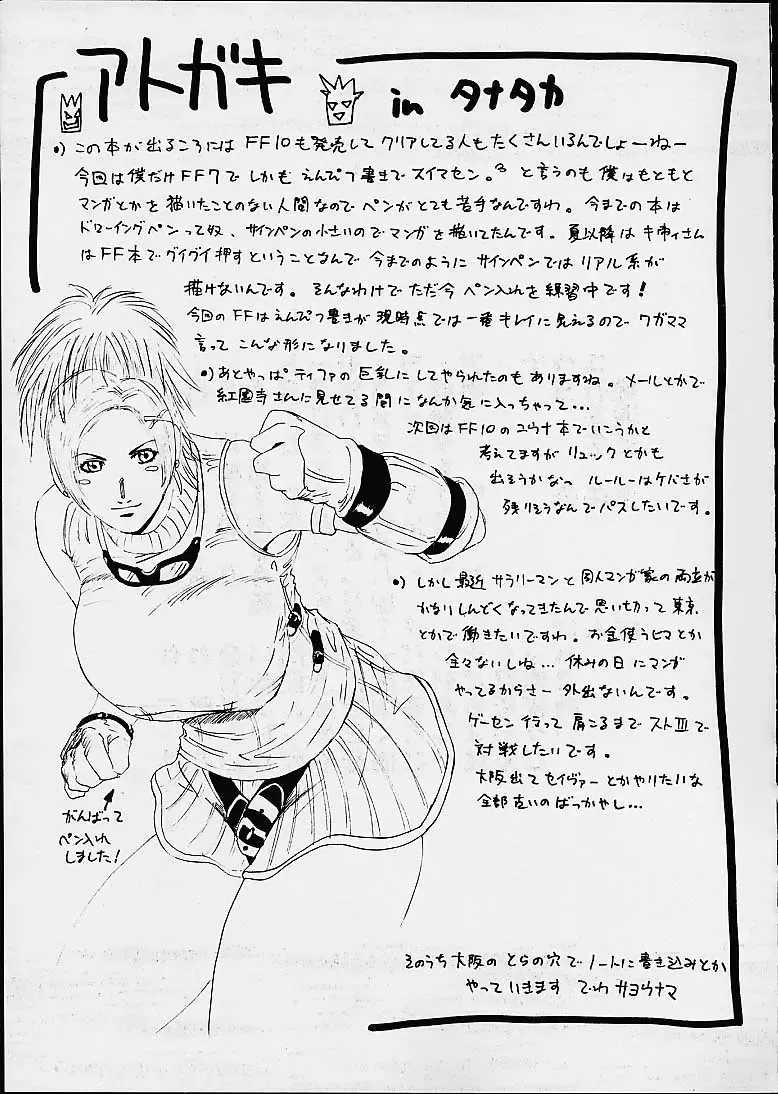 アトガキ
in タナタカ
•) この本が出るころには FF10も発売して クリアしてる人もたくさんいるんでしょーねー
今回は僕だけFF7で しかも えんぴつ書きでスイマセン。 と言うのも 僕はもともと
マンガとかを 描いたことのない人間なのでペンがとても苦手なんですわ。今までの本は
ドローイングペンって奴、サインペンの小さいのでマンガを描いてたんです。夏以降は さん
はFF本でグイグイ押すということなんで 今までのように サインペンではリアル系が
描けないんです。そんなわけでただ今 ペン入れを練習中です!
今回のFFはえんぴつ書きが現時点では一番キレイに見えるので ワガママ
言って こんな形になりました。
•) あとやっぱ ティファの巨乳に してやられたのも ありますね。 メールとかで
紅國寺さんに見せてる間に なんか気に入っちゃって…
次回はFF10のユウナ本でいこうかと
考えてますが リュックとかも
出ろうかなっ ルールーはケバさが
残りそうなんで パスしたいです。
•) しかし 最近 サラリーマンと 同人マンガ家の両立が
かないしんどくなってきたんで 思い切って東京
とかで 働きたいですわ。お金使うヒマとか
全々ないしね… 休みの日にマンガ
やってるからさー 外出ないんです。
ゲーセン行って 肩こるまで ストⅢで
対戦したいです。
大阪出て セイヴァーとかやりたいな
全部古いのばっかやし…
がんばって
ペン入れ
しました!
そのうち大阪の とらの穴で ノートに書き込みとか
やって いきます でわ サヨウナマ